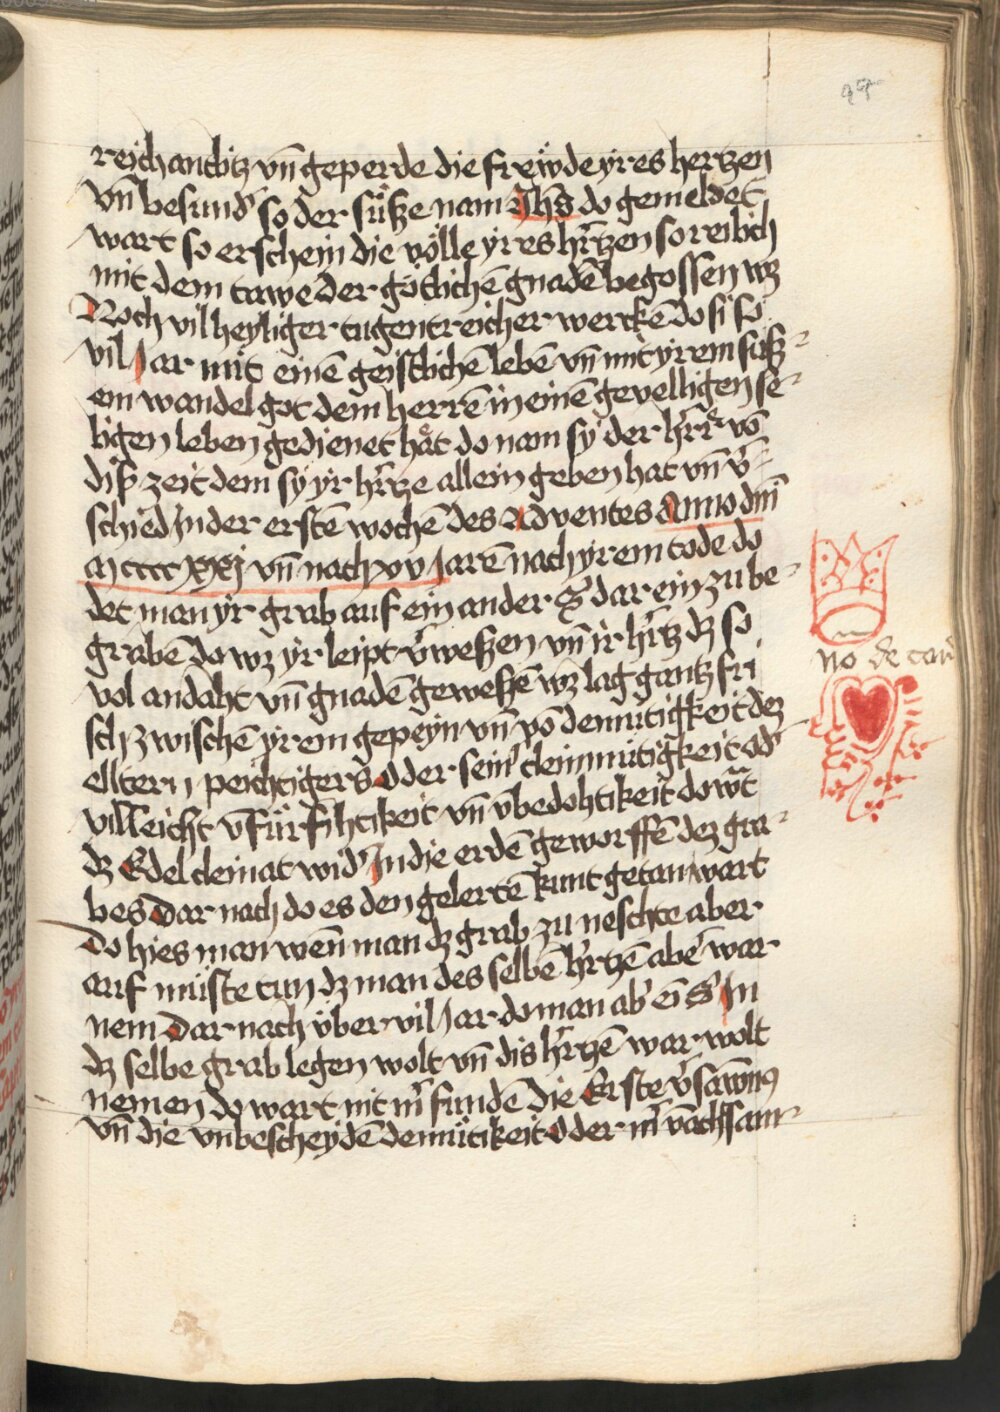 reich antlitz vn̄ geperde die frewde yres hertzen
vn̄ besund' so der süsze nam Jhs do gemeldet
wart so erschein die völle yres h'rtzen so reilich
mit dem tawe der götlichē gnadē begossen wz
Noch vil heyliger tugentreicher werckē do si so
vil Jar mit einē geistlichē lebē vn̄ mit yrem süsz
em wandel got dem herrē in einē gevelligen se
ligen leben gedienet hat do nam sy der h'r vō
disz zeit dem sy yr h'rtze allein geben hat vn̄ v'
schied Jn der erstē wochē des Adventes Anno dni
M cccc xxj vn̄ nach xv Jarē nach yrem tode do
det man yr grab auf ein ander S' dar ein zu be
grabē do wz yr leipt v'weszen vn̄ ir h'rtz dz so
vol andaht vn̄ gnadē geweszē wz lag gantz fri
sch zwischē yrem gepeyn vn̄ vō demütigkeit dez
elltern peichtigers oder sein' cleinmütigkeit od'
villeicht v̄fürsihtikeit vn̄ v̄bedohtikeit do w't
dz Edel cleinat wid' Jn die erdē geworffē dez gra
bes Dar nach do es den gelertē kunt getan wart
Do hies man wen̄ man dz grab zu neschte aber
auf müste tun dz man des selbē h'rtzē abe' war
nem Dar nach über vil Jar do man ab' ei S' Jn
dz selbe grab legen wolt vn̄ dis h'rtzē war wolt
nemen do wart nit m' fundē Die Erste v'sawm9
vn̄ die vnbescheydē demütikeit oder m' v̄achsam
no de cord